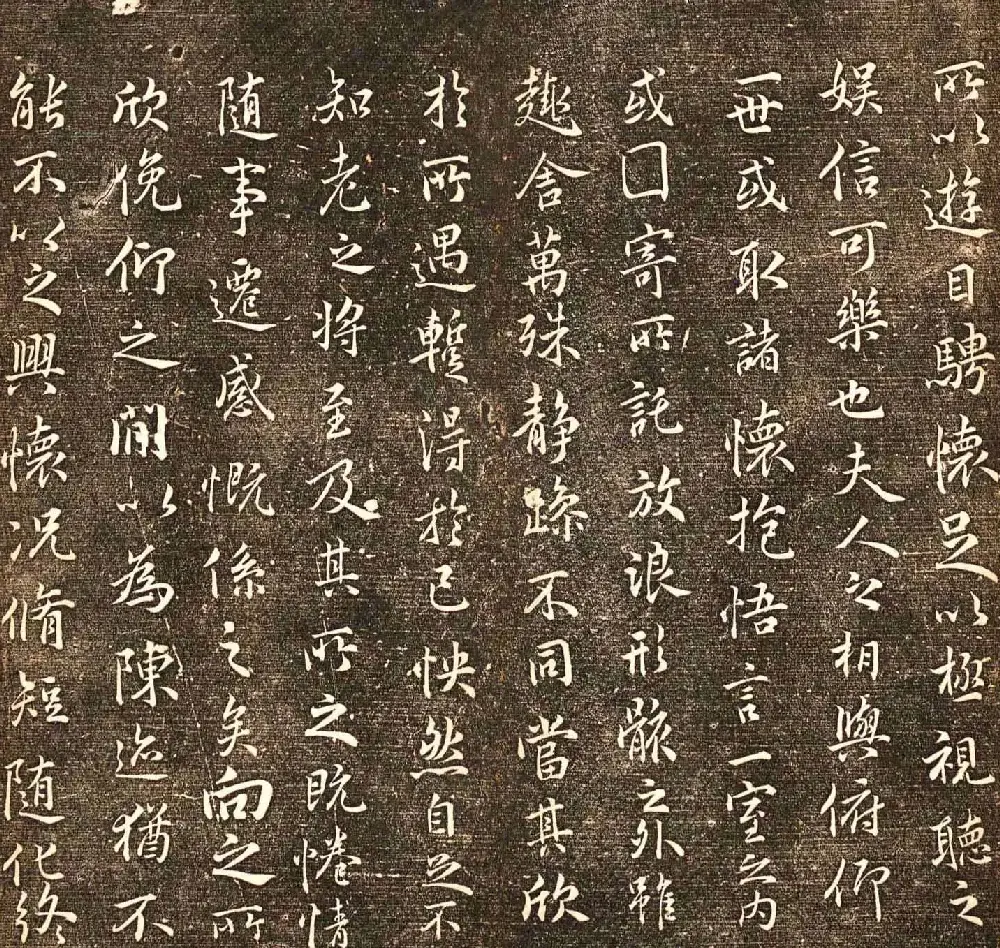 所以遊目騁懷足以極視聽之
娱信可樂也夫人之相與俯仰
一世或取諸懷抱悟言一室之内
或因寄所託放浪形骸之外雖
趣舍萬殊静躁不同當其欣
於所遇暫得於己怏然自足不
知老之将至及其所之既惓情
随事遷感慨係之矣向之所
欣俛仰之閒以為陳迹猶不
能不以之興懷况脩短随化終